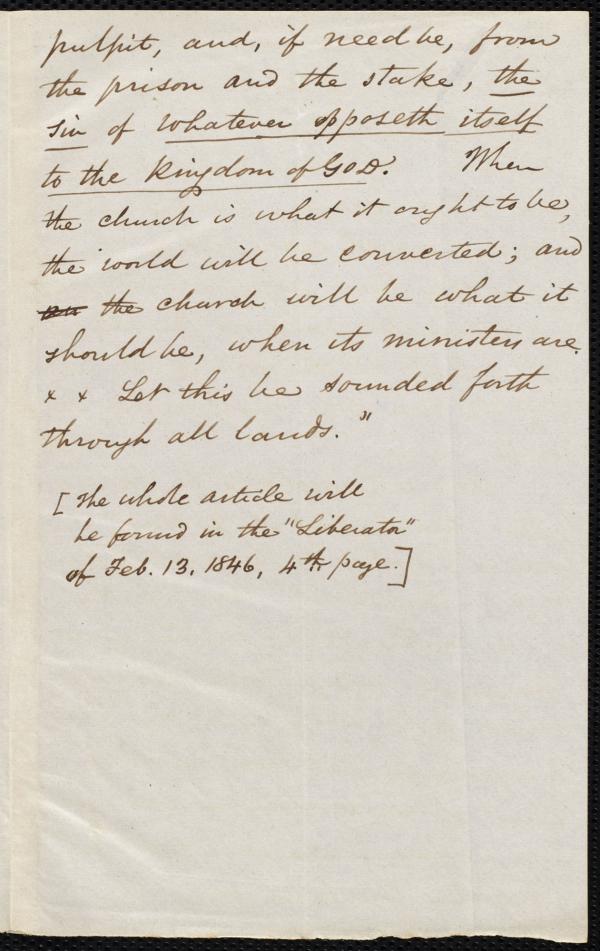 pulpit, and, if need be, from
the prison and the stake, the
sin of whatever opposeth itself
to the kingdom of GOD. When
the church is what it ought to be,
the world will be converted; and
the church will be what it
should be, when its ministers are.
x x Let this be sounded forth
through all lands."
[The whole article will
be found in the "Liberator"
of Feb. 13, 1846, 4th page.]